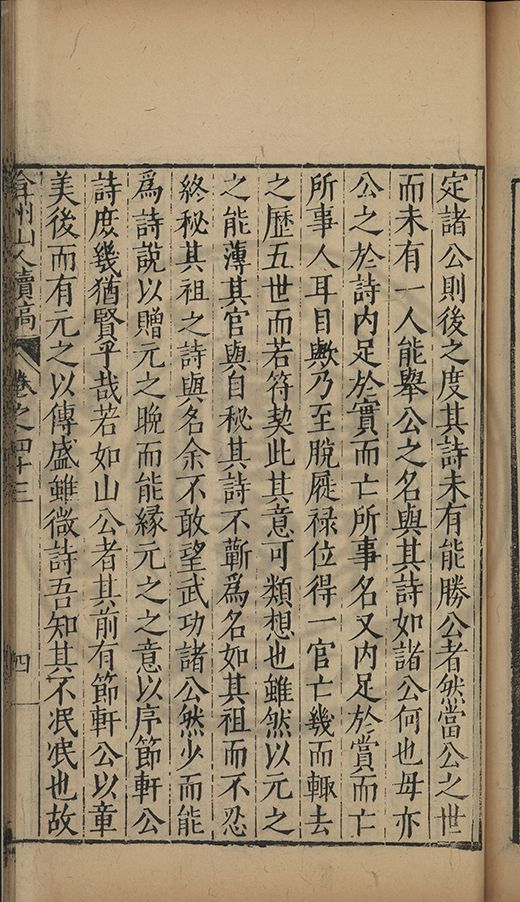 定諸公則後之度其詩未有能勝公者然當公之世
而未有一人能舉公之名與其詩如諸公何也毋亦
公之於詩內足於實而亡所事名又內足於賞而亡
所事人耳目歟乃至脫屣祿位得一官亡幾而輙去
之歷五世而若符契此其意可類想也雖然以元之
之能薄其官與自秘其詩不蘄爲名如其祖而不忍
終秘其祖之詩與名余不敢望武功諸公然少而能
爲詩說以贈元之晚而能縁元之之意以序節軒公
詩庶幾猶賢乎哉若如山公者其前有節軒公以章
美後而有元之以傳盛雖微詩吾知其不泯泯也故
弇州山人續稿 卷之四十三 四